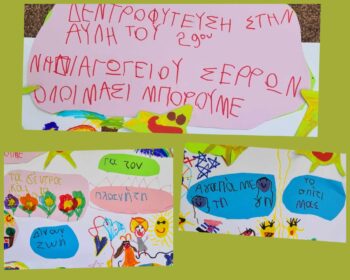 ΔΕΝΤΡΟΦΥΤΕΥΣΗ ΣΤΗΝ
ΑΥΛΗ ΤΟΥ 29ου
ΝΗΠΙΑΓΩΓΕΙΟΥ ΣΕΡΡΩΝ
ΟΛΟΙ ΜΑΖΙ ΜΠΟΡΟΥΜΕ
για τον
πλανήτη
Τα δέντρα
και τα
δίνουν
ζωή
Αγαπάμε
τη γη
το σπίτι
μας